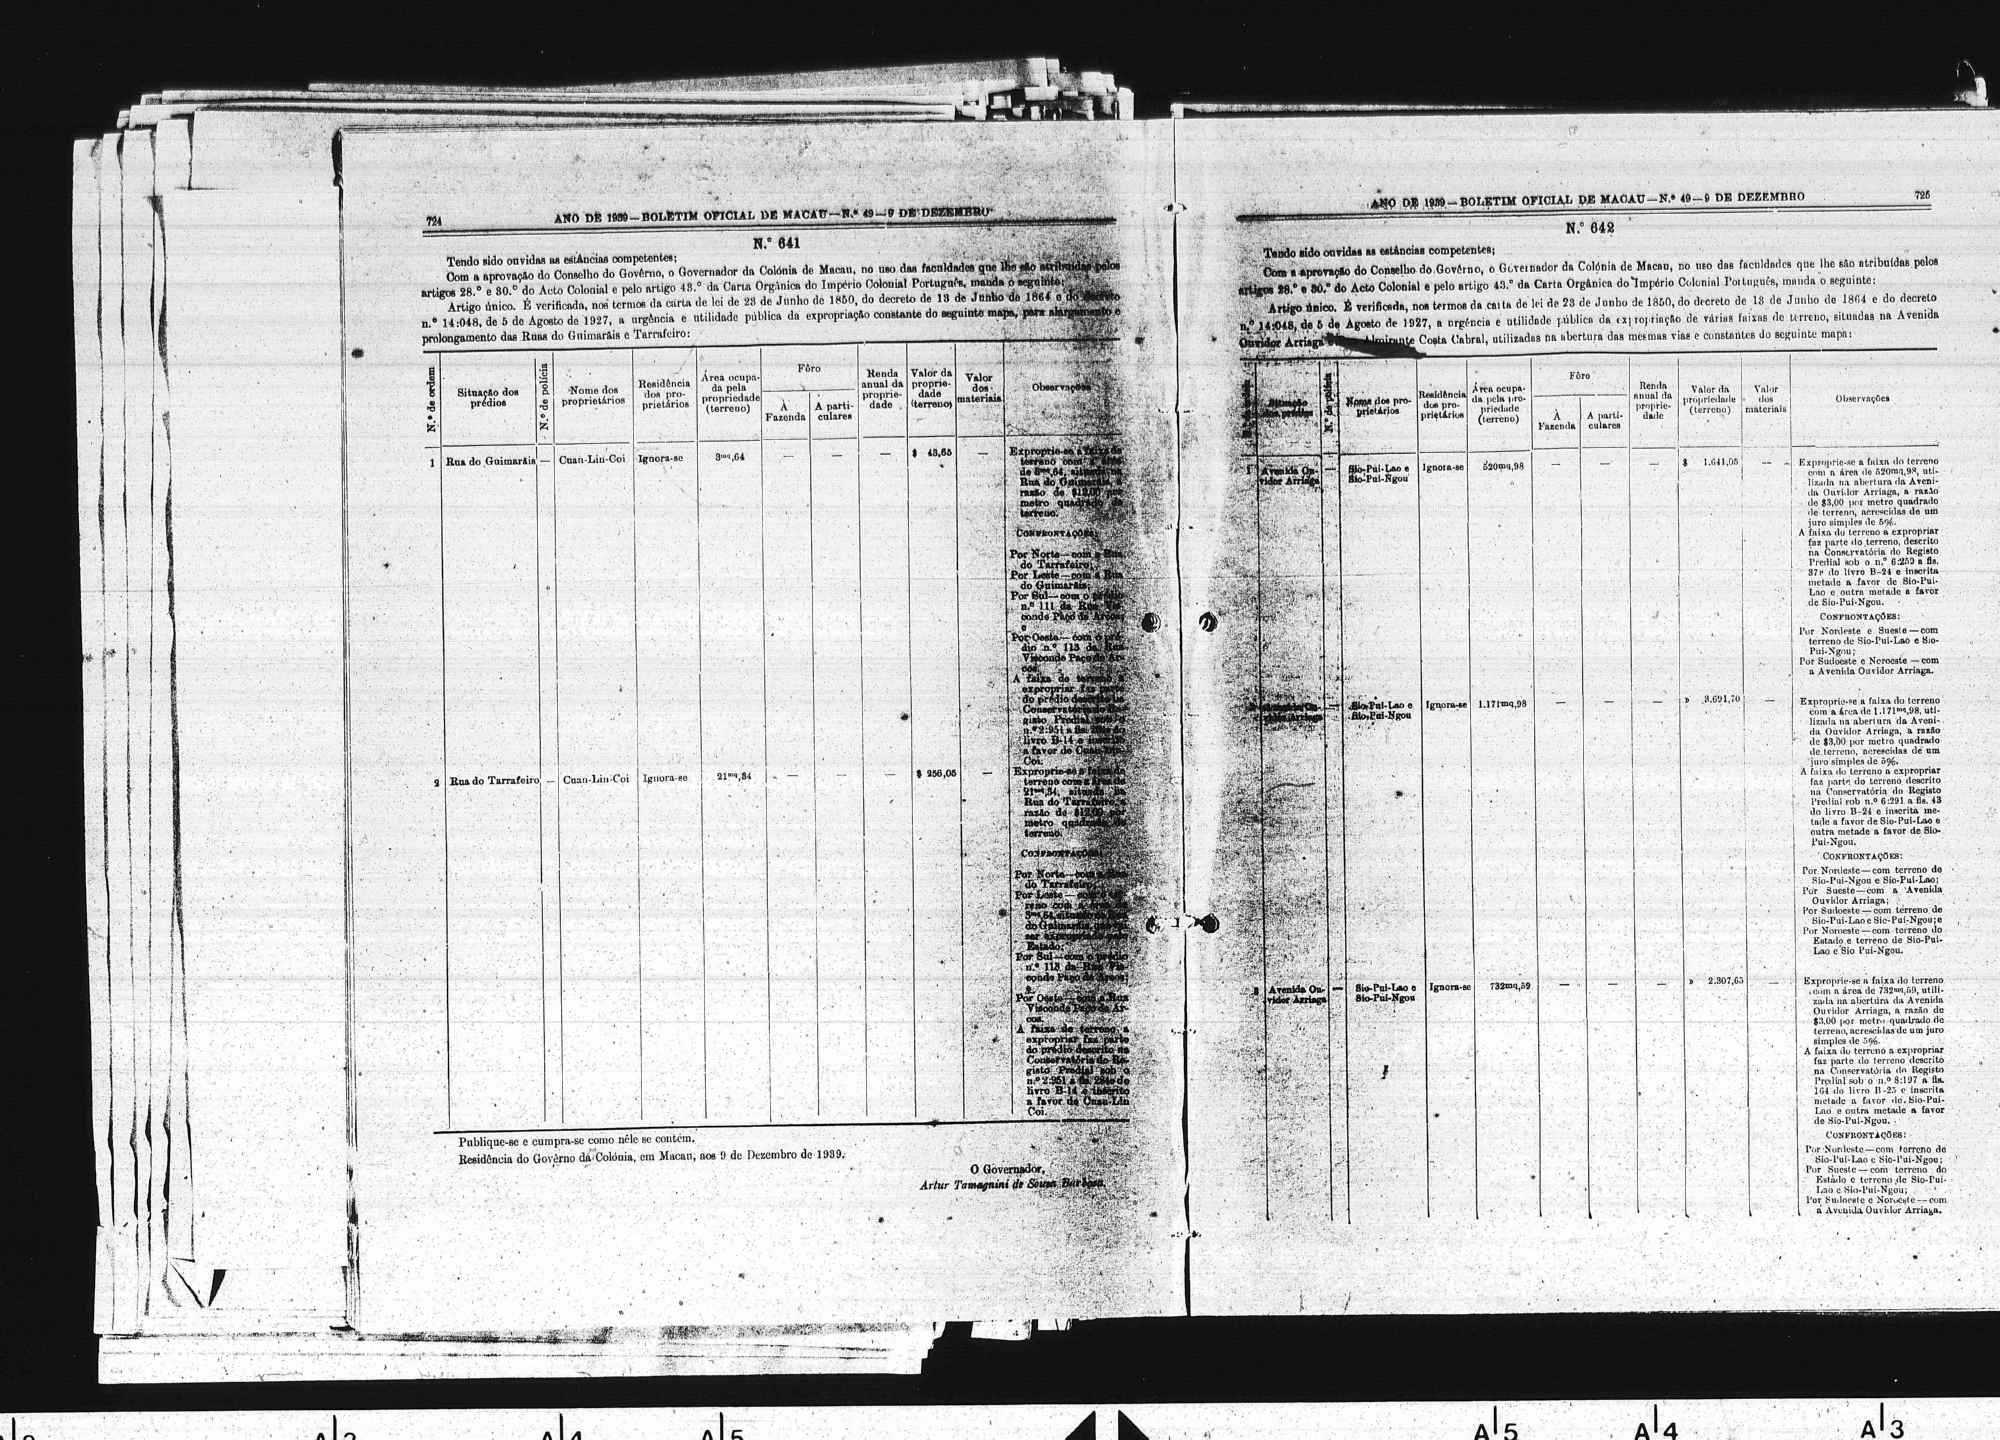 724
ANO DE 1939—BOLETIM OFICIAL DE MACAU—N.º 49—9 DE DEZEMBRO
N.º 641
Tendo sido ouvidas as estâncias competentes;
Com a aprovação do Conselho do Govêrno, o Governador da Colónia de Macau, no uso das faculdades que lhe são atribuídas pelos
artigos 28.º e 30.º do Acto Colonial e pelo artigo 43.º da Carta Orgânica do Império Colonial Português, manda o seguinte:
Artigo único. É verificada, nos termos da carta de lei de 23 de Junho de 1850, do decreto de 13 de Junho de 1864 e do decreto
n.º 14:048, de 5 de Agosto de 1927, a urgência e utilidade pública da expropriação constante do seguinte mapa, para alargamento e
prolongamento das Ruas do Guimarãis e Tarrafeiro:
N.º de ordem
Situação dos
prédios
N.º de polícia
Nome dos
proprietários
Residência
dos pro-
prietários
Área ocupa-
da pela
propriedade
(terreno)
Fôro
À
Fazenda
A parti-
culares
Renda
anual da
proprie-
dade
Valor da
proprie-
dade
(terreno)
Valor
dos
materiais
Observações
1 Rua do Guimarãis — Cuan-Lin-Coi Ignora-se 3mq,64 — — — $ 43,65 —
Exproprie-se a faixa de
terreno com a área
de 3mq,64, situada na
Rua do Guimarãis, à
razão de $12,00 por
metro quadrado de
terreno.
CONFRONTAÇÕES:
Por Norte—com a Rua
do Tarrafeiro;
Por Leste—com a Rua
do Guimarãis;
Por Sul—com o prédio
n.º 111 da Rua Vis-
conde Paço de Arcos;
e
Por Oeste—com o pré-
dio n.º 113 da Rua
Visconde Paço de Ar-
cos.
A faixa de terreno a
expropriar faz parte
do prédio descrito na
Conservatória do Re-
gisto Predial sob o
n.º 2:951 a fls. do
livro B-14 e inscrito
a favor de Cuan-Lin-
Coi.
2 Rua do Tarrafeiro — Cuan-Lin-Coi Ignora-se 21mq,34 — — — $ 256,05 —
Exproprie-se a faixa de
terreno com a área de
21mq,34, situada na
Rua do Tarrafeiro, à
razão de $12,00 por
metro quadrado de
terreno.
CONFRONTAÇÕES:
Por Norte—com a Rua
do Tarrafeiro;
Por Leste—com o ter-
reno com a área de
3mq,64, situado na Rua
do Guimarãis, que vai
ser expropriado pelo
Estado;
Por Sul—com o prédio
n.º 113 da Rua Vis-
conde Paço de Arcos;
e
Por Oeste—com a Rua
Visconde Paço de Ar-
cos.
A faixa de terreno a
expropriar faz parte
do prédio descrito na
Conservatória do Re-
gisto Predial sob o
n.º 2:951 a fls. do
livro B-14 e inscrito
a favor de Cuan-Lin
Coi.
Publique-se e cumpra-se como nêle se contém.
Residência do Govêrno da Colónia, em Macau, aos 9 de Dezembro de 1939.
O Governador,
Artur Tamagnini de Sousa Barbosa.
ANO DE 1939—BOLETIM OFICIAL DE MACAU—N.º 49—9 DE DEZEMBRO
725
N.º 642
Tendo sido ouvidas as estâncias competentes;
Com a aprovação do Conselho do Govêrno, o Governador da Colónia de Macau, no uso das faculdades que lhe são atribuídas pelos
artigos 28.º e 30.º do Acto Colonial e pelo artigo 43.º da Carta Orgânica do Império Colonial Português, manda o seguinte:
Artigo único. É verificada, nos termos da carta de lei de 23 de Junho de 1850, do decreto de 13 de Junho de 1864 e do decreto
n.º 14:048, de 5 de Agosto de 1927, a urgência e utilidade pública da expropriação de várias faixas de terreno, situadas na Avenida
Ouvidor Arriaga Almirante Costa Cabral, utilizadas na abertura das mesmas vias e constantes do seguinte mapa:
Situação
dos prédios
N.º de polícia
Nome dos pro-
prietários
Residência
dos pro-
prietários
Área ocupa-
da pela pro-
priedade
(terreno)
Fôro
À
Fazenda
A parti-
culares
Renda
anual da
proprie-
dade
Valor da
propriedade
(terreno)
Valor
dos
materiais
Observações
1 Avenida Ou-
vidor Arriaga
—
Sio-Pui-Lao e
Sio-Pui-Ngou
Ignora-se 520mq,98 — — — $ 1.641,05 —
Exproprie-se a faixa do terreno
com a área de 520mq,98, uti-
lizada na abertura da Aveni-
da Ouvidor Arriaga, a razão
de $3,00 por metro quadrado
de terreno, acrescidas de um
juro simples de 5%.
A faixa do terreno a expropriar
faz parte do terreno, descrito
na Conservatória do Registo
Predial sob o n.º 6:259 a fls.
37v do livro B-24 e inscrita
metade a favor de Sio-Pui-
Lao e outra metade a favor
de Sio-Pui-Ngou.
CONFRONTAÇÕES:
Por Nordeste e Sueste—com
terreno de Sio-Pui-Lao e Sio-
Pui-Ngou;
Por Sudoeste e Noroeste—com
a Avenida Ouvidor Arriaga.
Sio-Pui-Lao e
Sio-Pui-Ngou
Ignora-se 1.171mq,98 — — — » 3.691,70 —
Exproprie-se a faixa do terreno
com a área de 1.171mq,98, uti-
lizada na abertura da Aveni-
da Ouvidor Arriaga, a razão
de $3,00 por metro quadrado
de terreno, acrescidas de um
juro simples de 5%.
A faixa do terreno a expropriar
faz parte do terreno descrito
na Conservatória do Registo
Predial sob n.º 6:291 a fls. 43
do livro B-24 e inscrita me-
tade a favor de Sio-Pui-Lao e
outra metade a favor de Sio-
Pui-Ngou.
CONFRONTAÇÕES:
Por Nordeste—com terreno de
Sio-Pui-Ngou e Sio-Pui-Lao;
Por Sueste—com a Avenida
Ouvidor Arriaga;
Por Sudoeste—com terreno de
Sio-Pui-Lao e Sio-Pui-Ngou; e
Por Noroeste—com terreno do
Estado e terreno de Sio-Pui-
Lao e Sio Pui-Ngou.
3 Avenida Ou-
vidor Arriaga
—
Sio-Pui-Lao e
Sio-Pui-Ngou
Ignora-se 732mq,59 — — — » 2.307,65 —
Exproprie-se a faixa do terreno
com a área de 732mq,59, utili-
zada na abertura da Avenida
Ouvidor Arriaga, a razão de
$3,00 por metro quadrado de
terreno, acrescidas de um juro
simples de 5%.
A faixa do terreno a expropriar
faz parte do terreno descrito
na Conservatória do Registo
Predial sob o n.º 8:197 a fls.
164 do livro B-25 e inscrita
metade a favor de Sio-Pui-
Lao e outra metade a favor
de Sio-Pui-Ngou.
CONFRONTAÇÕES:
Por Nordeste—com terreno de
Sio-Pui-Lao e Sio-Pui-Ngou;
Por Sueste—com terreno do
Estado e terreno de Sio-Pui-
Lao e Sio-Pui-Ngou;
Por Sudoeste e Noroeste—com
a Avenida Ouvidor Arriaga.
A4 A5 A5 A4 A3